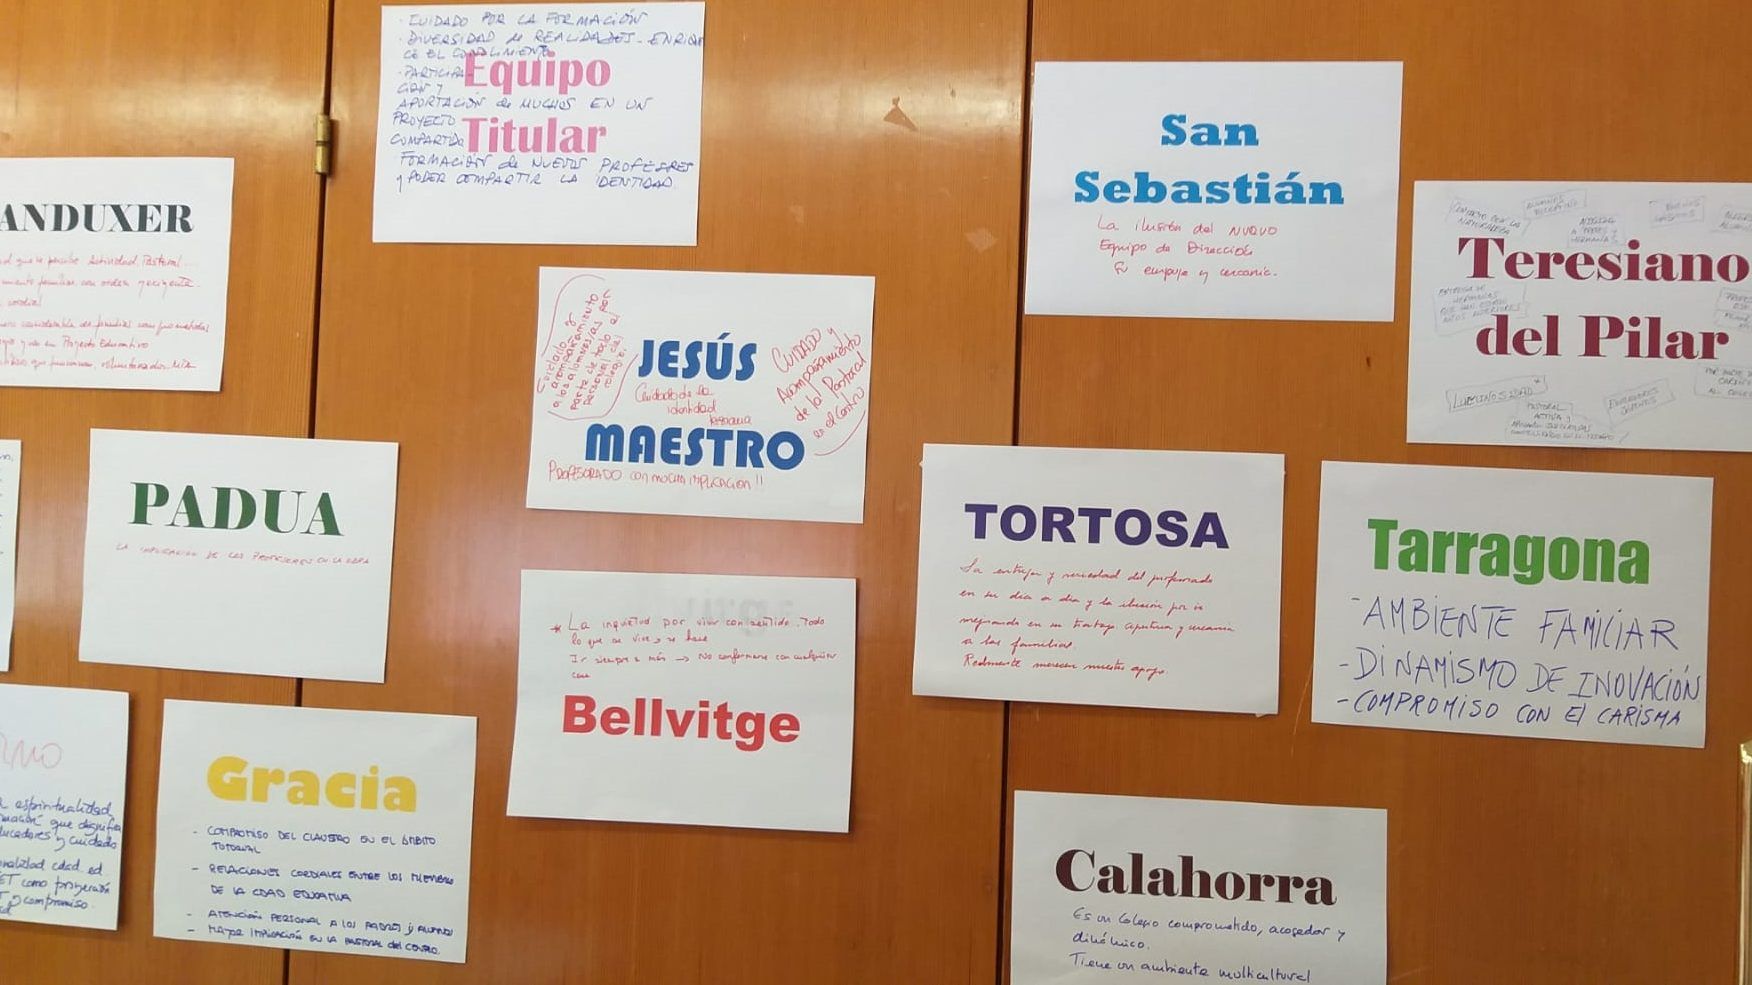 - CUIDADO POR LA FORMACIÓN
- DIVERSIDAD de REALIDADES - ENRIQUE
CE EL CONOCIMIENTO
- PARTICIPA-
CIÓN Y
APORTACIÓN de MUCHOS EN UN
PROYECTO
COMPARTIDO
- FORMACIÓN de NUEVOS PROFESRES
y PODER COMPARTIR LA IDENTIDAD.
Equipo
Titular
ANDUXER
que se percibe Actividad Pastoral...
familiar con orden y exigente.
cordial
considerable de familias comprometidas
y en su Proyecto Educativo
San
Sebastián
La ilusión del NUEVO
Equipo de Dirección
Su empuje y cercanía.
CONTACTO CON LA
NATURALEZA
Teresiano
del Pilar
ENTREGA DE
HERMANAS
QUE HAN ESTADO
AÑOS ANTERIORES
LUMINOSIDAD
PASTORAL
ACTIVA Y
EDUCADORES
JÓVENES
Cuidado y
acompañamiento
a los alumnos/as por
parte de todo el
personal del
colegio.
JESÚS
MAESTRO
Cuidado de la
identidad
teresiana
CUIDADO y
Acompañamiento
de la Pastoral
en el Centro
PROFESORADO CON MUCHA IMPLICACIÓN!!
PADUA
LA IMPLICACIÓN DE LOS PROFESORES EN LA OBRA
TORTOSA
La entrega y seriedad del profesorado
en su día a día y la ilusión por ir
mejorando en su trabajo. Apertura y cercanía
a las familias.
Realmente merecen nuestro apoyo.
Tarragona
- AMBIENTE FAMILIAR
- DINAMISMO DE INOVACIÓN
- COMPROMISO CON El CARISMA
* La inquietud por vivir con sentido. Todo
lo que se vive y se hace
Ir siempre a más → No conformarse con cualquier
cosa
Bellvitge
espiritualidad
que dignifica
educadores y cuidado
ET como proyección
y compromiso.
Gracia
- COMPROMISO DEL CLAUSTRO EN EL ÁMBITO
TUTORIAL
- RELACIONES CORDIALES ENTRE LOS MIEMBROS
DE LA CDAD EDUCATIVA
- ATENCIÓN PERSONAL A LOS PADRES y ALUMNOS
- MAYOR IMPLICACIÓN EN LA PASTORAL del CENTRO.
Calahorra
Es un Colegio comprometido, acogedor y
dinámico.
Tiene un ambiente multicultural